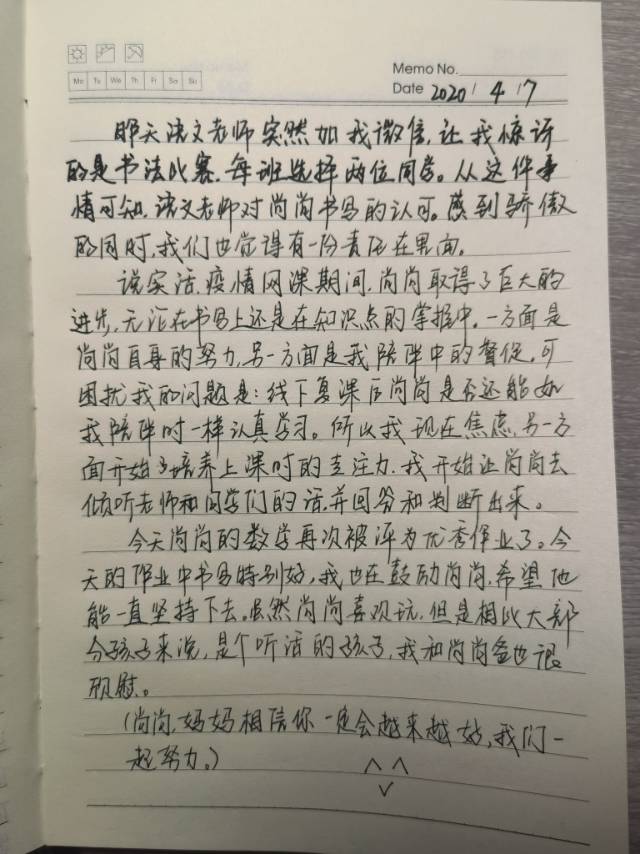 Memo No.
Mo Tu We Th Fr Sa Su
Date 2020 / 4 / 7
昨天语文老师突然加我微信,让我惊讶
的是书法比赛,每班选择两位同学。从这件事
情可知,语文老师对尚尚书写的认可。感到骄傲
的同时,我们也觉得有一份责任在里面。
说实话,疫情网课期间,尚尚取得了巨大的
进步,无论在书写上还是在知识点的掌握中,一方面是
尚尚自身的努力,另一方面是我陪伴中的督促,可
困扰我的问题是:线下复课后尚尚是否还能如
我陪伴时一样认真学习。所以我现在焦虑,另一方
面开始了培养上课时的专注力,我开始让尚尚去
倾听老师和同学们的话,并回答和判断出来。
今天尚尚的数学再次被评为优秀作业了。今
天的作业中书写特别好,我也在鼓励尚尚,希望他
能一直坚持下去。虽然尚尚喜欢玩,但是相比大部
分孩子来说,是个听话的孩子,我和尚尚爸也很
欣慰。
(尚尚,妈妈相信你一定会越来越好,我们一
起努力。)